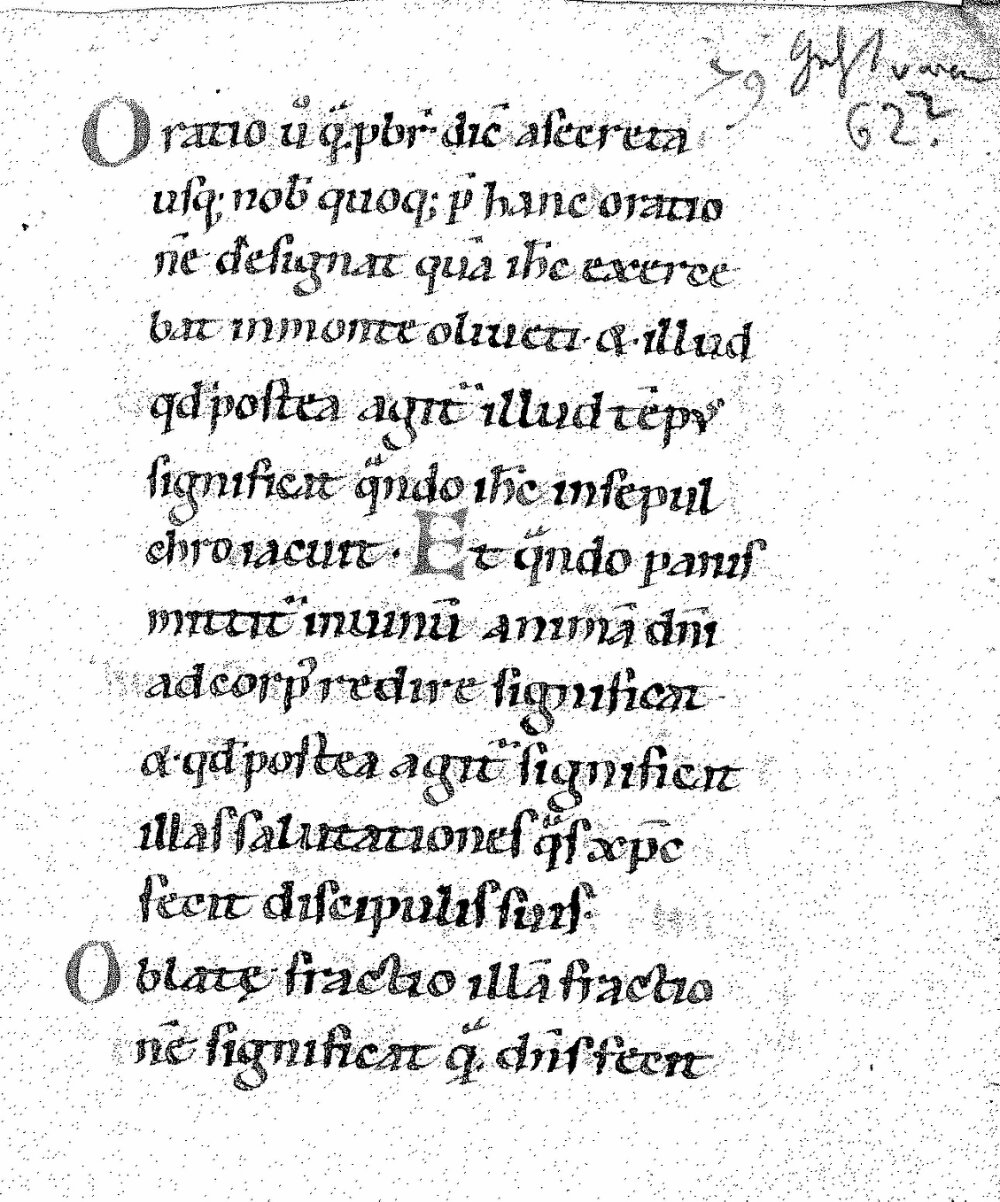 62?
Oratio ū q̄ p̄br̄ dic̄ a secreta
usq; nob̄ quoq; p̄ hanc oratio
nē designat quā ih̄c exerce
bat in monte oliueti · & · illud
qd̄ postea agit᷑ illud tēpꝰ
significat qͣndo ih̄c in sepul
chro iacuit · Et qͣndo panis
mittit᷑ in uinū animā dn̄i
ad corpꝰ redire significat
& · qd̄ postea agit᷑ significat
illas salutationes qͣs xp̄c
fecit discipulis suis ·
Oblatę fractio illā fractio
nē significat qͣ dn̄s fecit